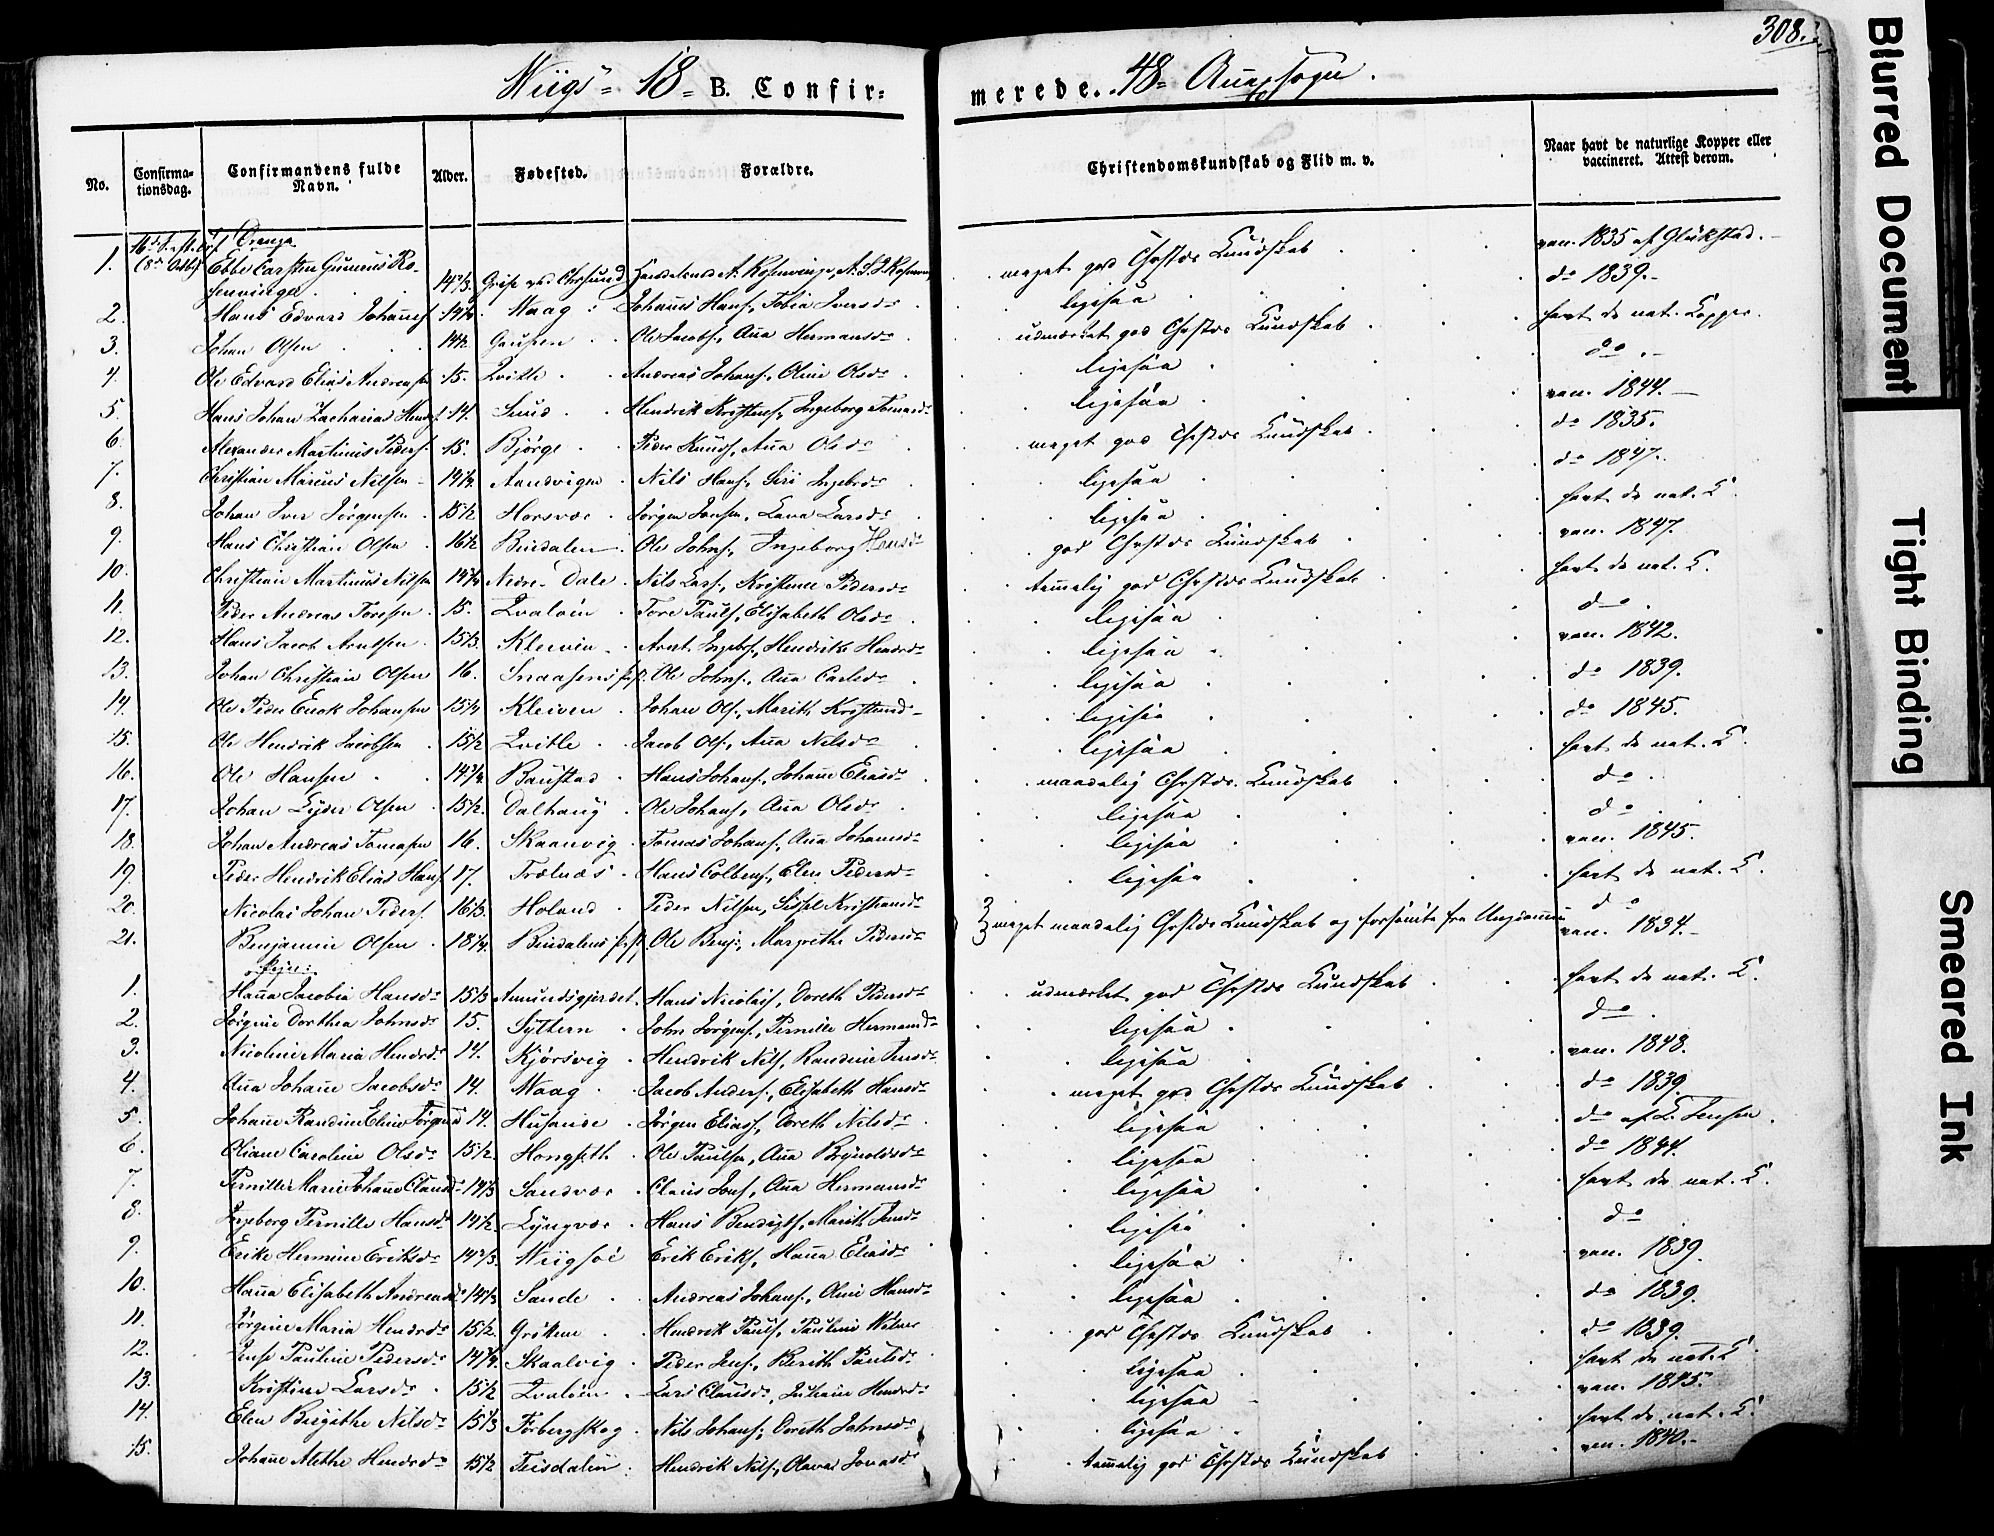 308.
Wiigs- 18- B. Confir: merede. 48- Annex sogn.
No. Confirma-tionsdag. Confirmandens fulde Navn. Alder. Fødested. Forældre. Christendomskundskab og Flid m. v. Naar havt de naturlige Kopper eller vaccineret. Attest derom.
Drenge
1. Ebbe Carsten Gunerius Ro-senvinge 14 2/3. Grip ved Chrsund meget god Chrstds Kundskab vac. 1835 af Glükstad.
2. Hans Edvard Johannes. Waag Johannes Hans., Tobia Iversdr ligesaa do 1839.
3. Johan Olsen 14 1/2. Gaupen Ole Jacobs., Anna Hermansdr udmærket god Chrstds Kundskab havt de nat. Kopper.
4. Ole Edvard Elias Andreasen 15. Qvitle Andreas Johans., Oline Olsdr ligesaa do
5. Hans Johan Zacharias Hendr. 14. Sund Hendrik Kristens., Ingeborg Tomasdr ligesaa vac. 1844.
6. Alexander Martinus Peders. 15. Bjørge Peder Knuds., Anna Olsdr meget god Chrstds Kundskab do 1835.
7. Christian Marius Nilsen 14 1/2. Aandvigen Nils Hans., Siri Ingebrdr ligesaa do 1847.
8. Johan Iver Jørgensen 15 1/2 Horsvær Jørgen Jonsen, Lava Larsdr ligesaa havt de nat. K.
9. Hans Christian Olsen 16 1/2 Bindalen Ole Johns., Ingeborg Hansdr god Chrstds Kundskab vac. 1847.
10. Christian Martinus Nilsen 14 3/4 Nedre-Dale Nils Lars., Kristence Pedersdr temmelig god Chrstds Kundskab havt de nat. K.
11. Peder Andreas Toresen 15. Qvaløen Tore Pauls., Elisabeth Olsdr ligesaa do
12. Hans Jacob Arntsen 15 1/3. Kleivin Arnt Ingebr., Hendrikke Hendrdr ligesaa vac. 1842.
13. Johan Christian Olsen 16. Snaasens Pgj. Ole Johns., Anna Carlsdr ligesaa do 1839.
14. Ole Peder Enok Johansen 15 1/4 Kleiven Johan Ols., Marith Kristiansd ligesaa do 1845.
15. Ole Hendrik Jacobsen 15 1/2 Qvitle Jacob Ols., Anna Nilsdr ligesaa havt de nat. K.
16. Ole Hansen 14 3/4 Baustad Hans Johans., Johanne Eliasdr maadelig Chrstds. Kundskab do
17. Johan Eyder Olsen 15 1/2. Dalhaug Ole Johans., Anna Olsdr ligesaa do
18. Johan Andreas Tomasen 16. Skaanvig Tomas Johans., Anna Johansdr ligesaa vac. 1845.
19. Peder Hendrik Elias Hans. 17. Trælnæs Hans Colbens., Elen Pedersdr ligesaa havt de nat. K.
20. Nicolai Johan Peders. 16 1/3. Holand Peder Nilsen, Sissel Kristiansdr do
21. Benjamin Olsen 18 1/4. Bindalens Pgj. Ole Benj., Margrethe Pedersdr meget maadelig Chrstds Kundskab og forsømte fra Ungdommen vac. 1834.
Piger:
1. Hanna Jacobia Hansdr 15 1/3 Amundsgjerdet Hans Nicolais., Doreth Pedersdr udmærket god Chrstds Kundskab havt de nat. K.
2. Jørgine Dorthea Johnsdr 15. Syttern John Jørgens., Pernille Hermansdr ligesaa do
3. Nicoline Maria Hendrdr 14. Kjørsvig Hendrik Nils., Randine Jensdr ligesaa vac. 1848.
4. Anna Johanne Jacobsdr 14. Waag Jacob Anders., Elisabeth Hansdr meget god Chrstds Kundskab do 1839
5. Johanne Randine Eline Jørgensd 14. Husanse Jørgen Elias., Doreth Nilsdr ligesaa do af L. Jensen.
6. Oliane Caroline Olsdr 15 1/2. Hongseth Ole Paulsen, Anna Brynoldsdr ligesaa do 1844.
7. Pernille Marie Johanne Clausdr 14 1/3 Sandvær Claus Jons., Anna Hermansdr ligesaa havt de nat. K.
8. Ingeborg Pernille Hansdr 14 1/2. Lyngvær Hans Bendigts., Marith Jensd ligesaa do
9. Erike Hermine Eriksdr 14 2/3. Wiigsøe Erik Eriks., Hanna Eliasdr ligesaa vac. 1839.
10. Hanna Elisabeth Andreasdr Sande Andreas Johans., Oline Hansdr ligesaa do 1839.
11. Jørgine Maria Hendrdr 15 1/2. Grøken Hendrik Pauls., Pauline god Chrstds Kundskab do 1839.
12. Jense Pauline Pedersdr 14 3/4. Skaalvig Peder Jens., Berith Paulsdr ligesaa havt de nat. K.
13. Kristine Larsdr 15 1/2 Qvaløen Lars Clausdr, Hendrdr ligesaa vac. 1845.
14. Elen Birgithe Nilsdr 15 1/3 Forbergskog Nils Johans., Doreth Johnsdr ligesaa havt de nat. K.
15. Johanne Alethe Hendrdr 15 1/2 Teisdalen Hendrik Nils., Olava Jonasdr temmelig god Chrstds Kundskab vac. 1840.
Blurred Document
Tight Binding
Smeared Ink